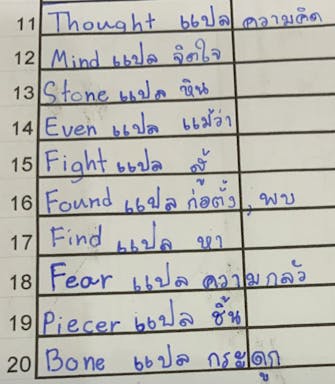 11 Thought แปล ความคิด
12 Mind แปล จิตใจ
13 Stone แปล หิน
14 Even แปล แม้ว่า
15 Fight แปล สู้
16 Found แปล ก่อตั้ง, พบ
17 Find แปล หา
18 Fear แปล ความกลัว
19 Piecer แปล ชิ้น
20 Bone แปล กระดูก